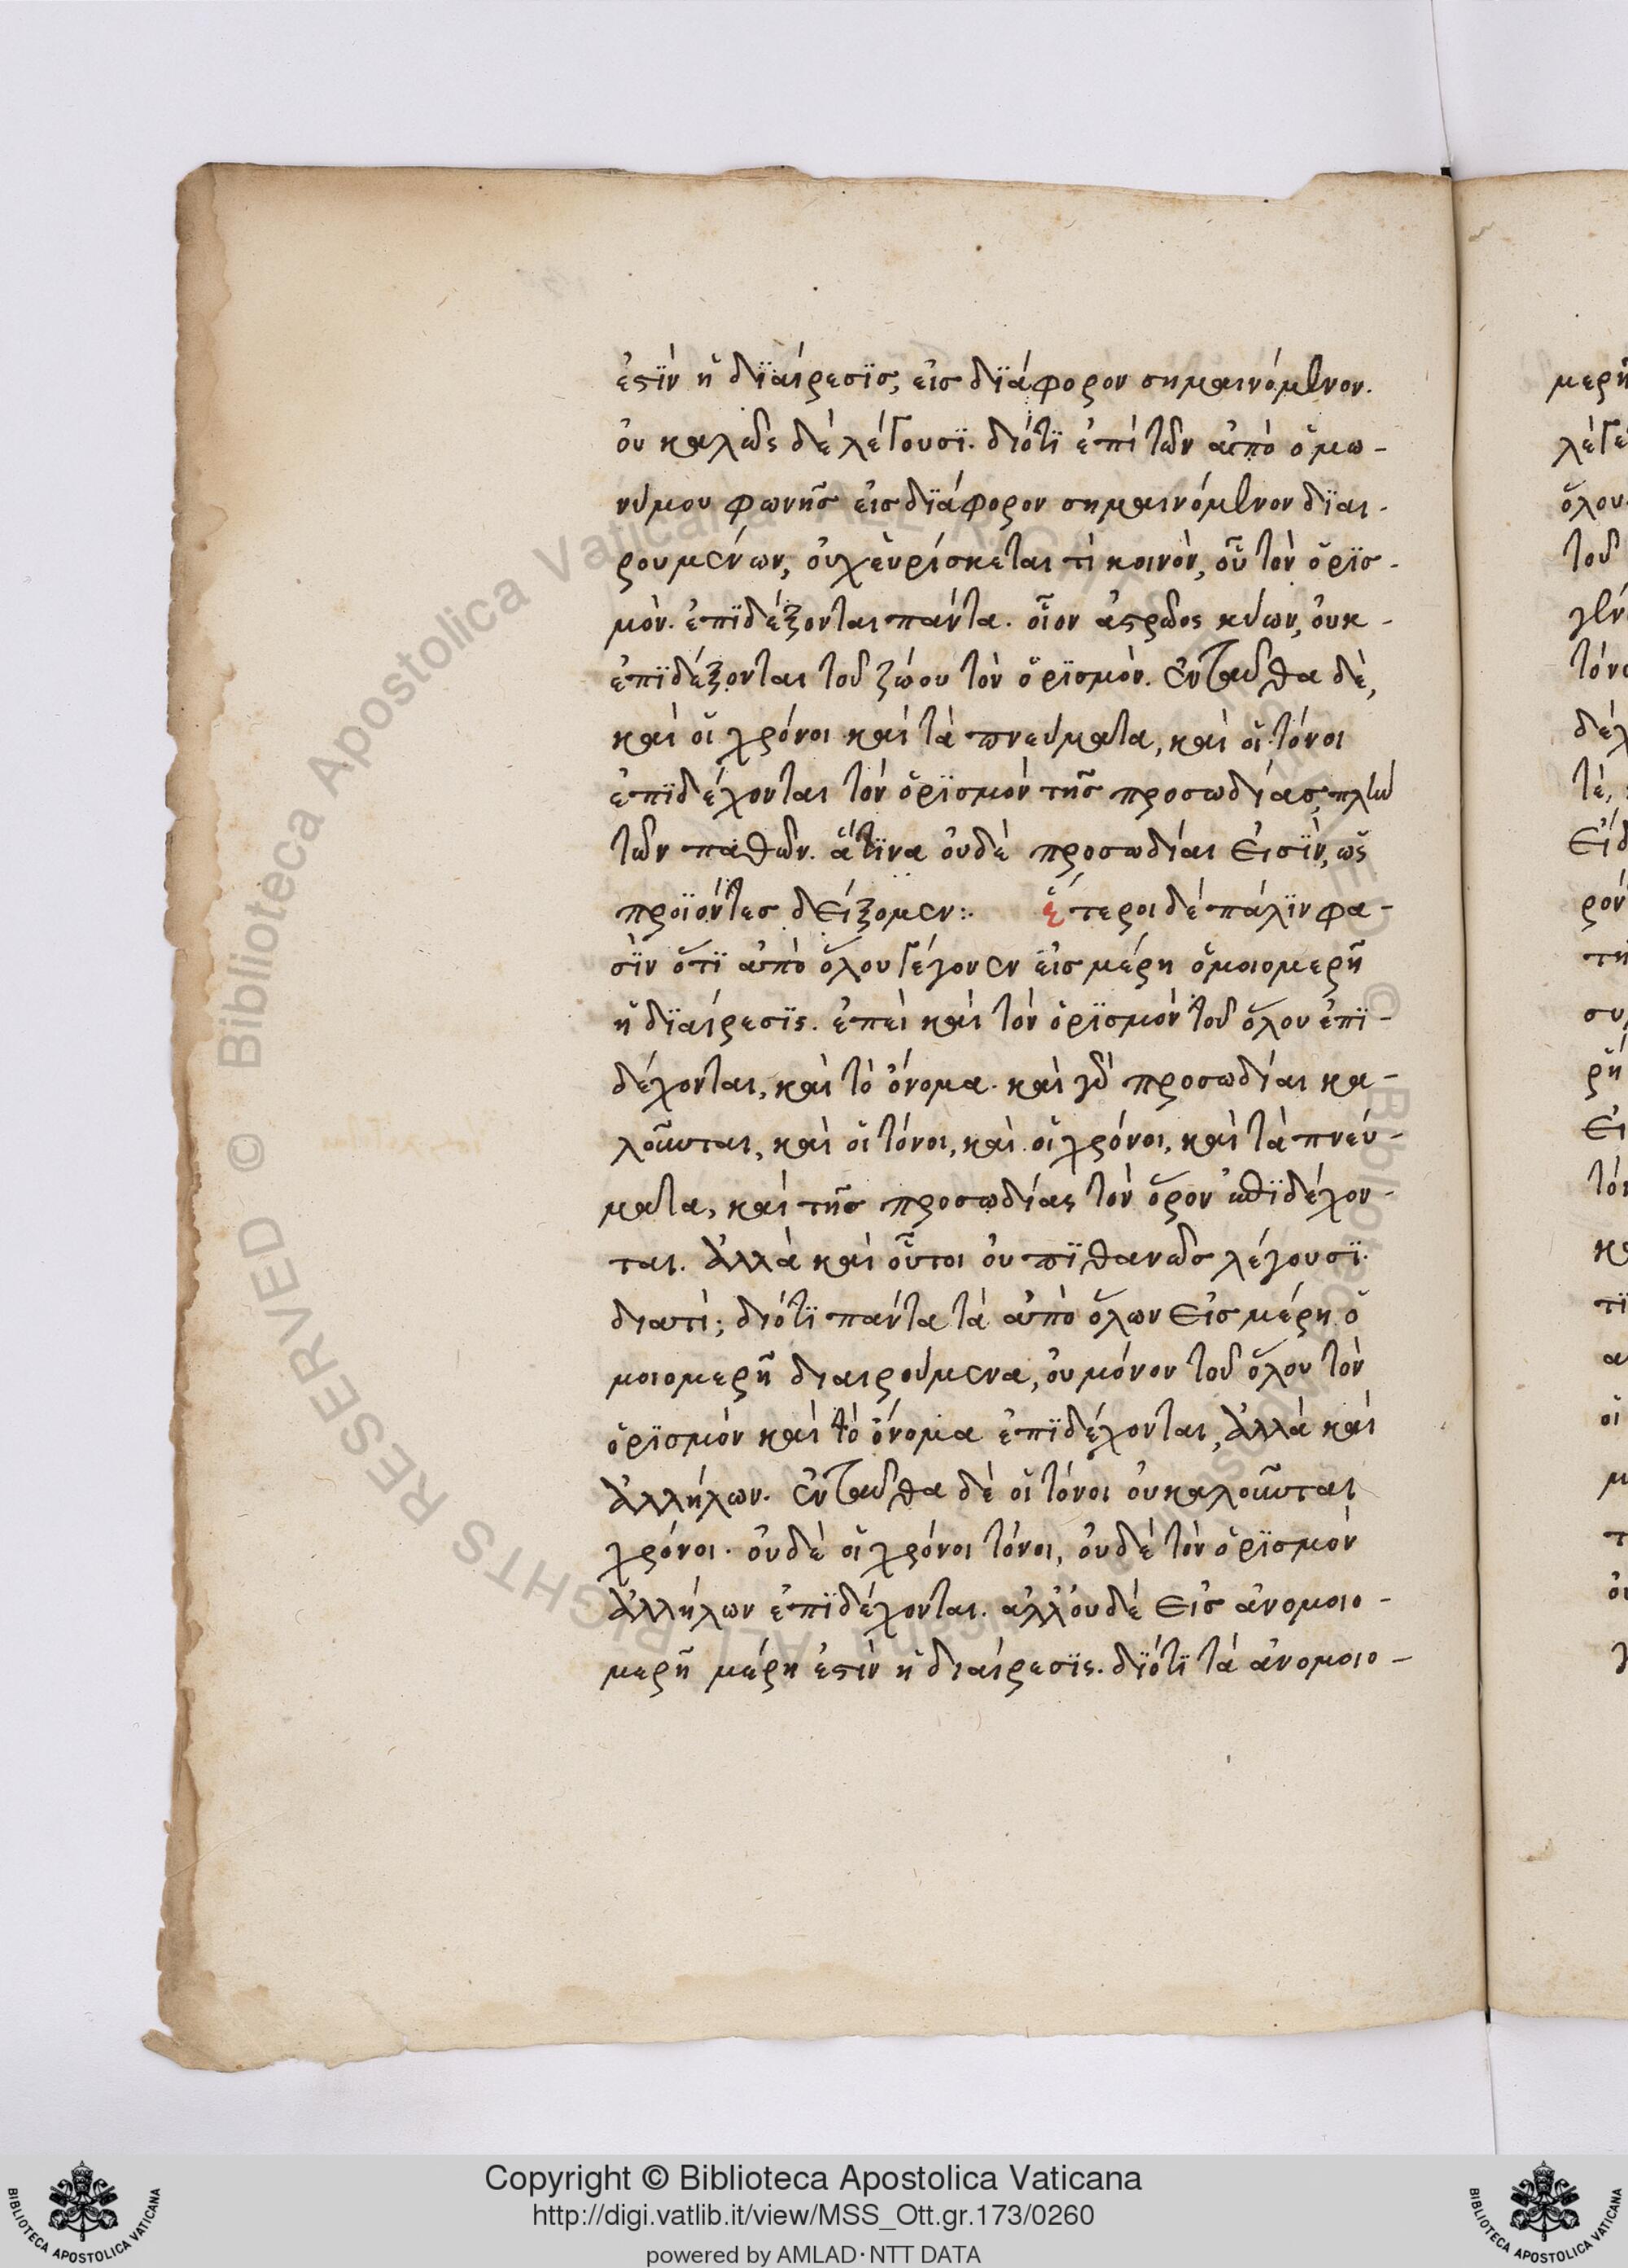 ἐστὶν ἡ διαίρεσις, εἰς διάφορον σημαινόμενον.
οὐ καλῶς δὲ λέγουσι. διότι ἐπὶ τῶν ἀπὸ ὁμω-
νύμου φωνῆς εἰς διάφορον σημαινόμενον διαι-
ρουμένων, οὐχ εὑρίσκεται τὶ κοινὸν, οὗ τὸν ὁρισ-
μὸν ἐπιδέξονται πάντα. οἷον ἀστρῶος κύων, οὐκ
ἐπιδέξονται τοῦ ζώου τὸν ὁρισμὸν. ἐνταῦθα δὲ,
καὶ οἱ χρόνοι καὶ τὰ πνεύματα, καὶ οἱ τόνοι
ἐπιδέχονται τὸν ὁρισμὸν τῆς προσωδίας, πλὴν
τῶν παθῶν. ἅτινα οὐδὲ προσωδίαι εἰσὶν, ὡς
προϊόντες δείξομεν:. ἕτεροι δὲ πάλιν φα-
σὶν ὅτι ἀπὸ ὅλου γέγονεν εἰς μέρη ὁμοιομερῆ
ἡ διαίρεσις. ἐπεὶ καὶ τὸν ὁρισμὸν τοῦ ὅλου ἐπι-
δέχονται, καὶ τὸ ὄνομα. καὶ γὰρ προσωδίαι κα-
λοῦνται, καὶ οἱ τόνοι, καὶ οἱ χρόνοι, καὶ τὰ πνεύ-
ματα, καὶ τῆς προσωδίας τὸν ὅρον ἐπιδέχον-
ται. ἀλλὰ καὶ οὗτοι οὐ πιθανῶς λέγουσι.
διατί; διότι πάντα τὰ ἀπὸ ὅλων εἰς μέρη ὁ
μοιομερῆ διαιρούμενα, οὐ μόνον τοῦ ὅλου τὸν
ὁρισμὸν καὶ τὸ ὄνομα ἐπιδέχονται, ἀλλὰ καὶ
ἀλλήλων. ἐνταῦθα δὲ οἱ τόνοι οὐ καλοῦνται
χρόνοι. οὐδὲ οἱ χρόνοι τόνοι, οὐδὲ τὸν ὁρισμὸν
ἀλλήλων ἐπιδέχονται. ἀλλ' οὐδὲ εἰς ἀνομοιο-
μερῆ μέρη ἐστὶν ἡ διαίρεσις. διότι τὰ ἀνομοιο-
Copyright © Biblioteca Apostolica Vaticana
http://digi.vatlib.it/view/MSS_Ott.gr.173/0260
powered by AMLAD·NTT DATA